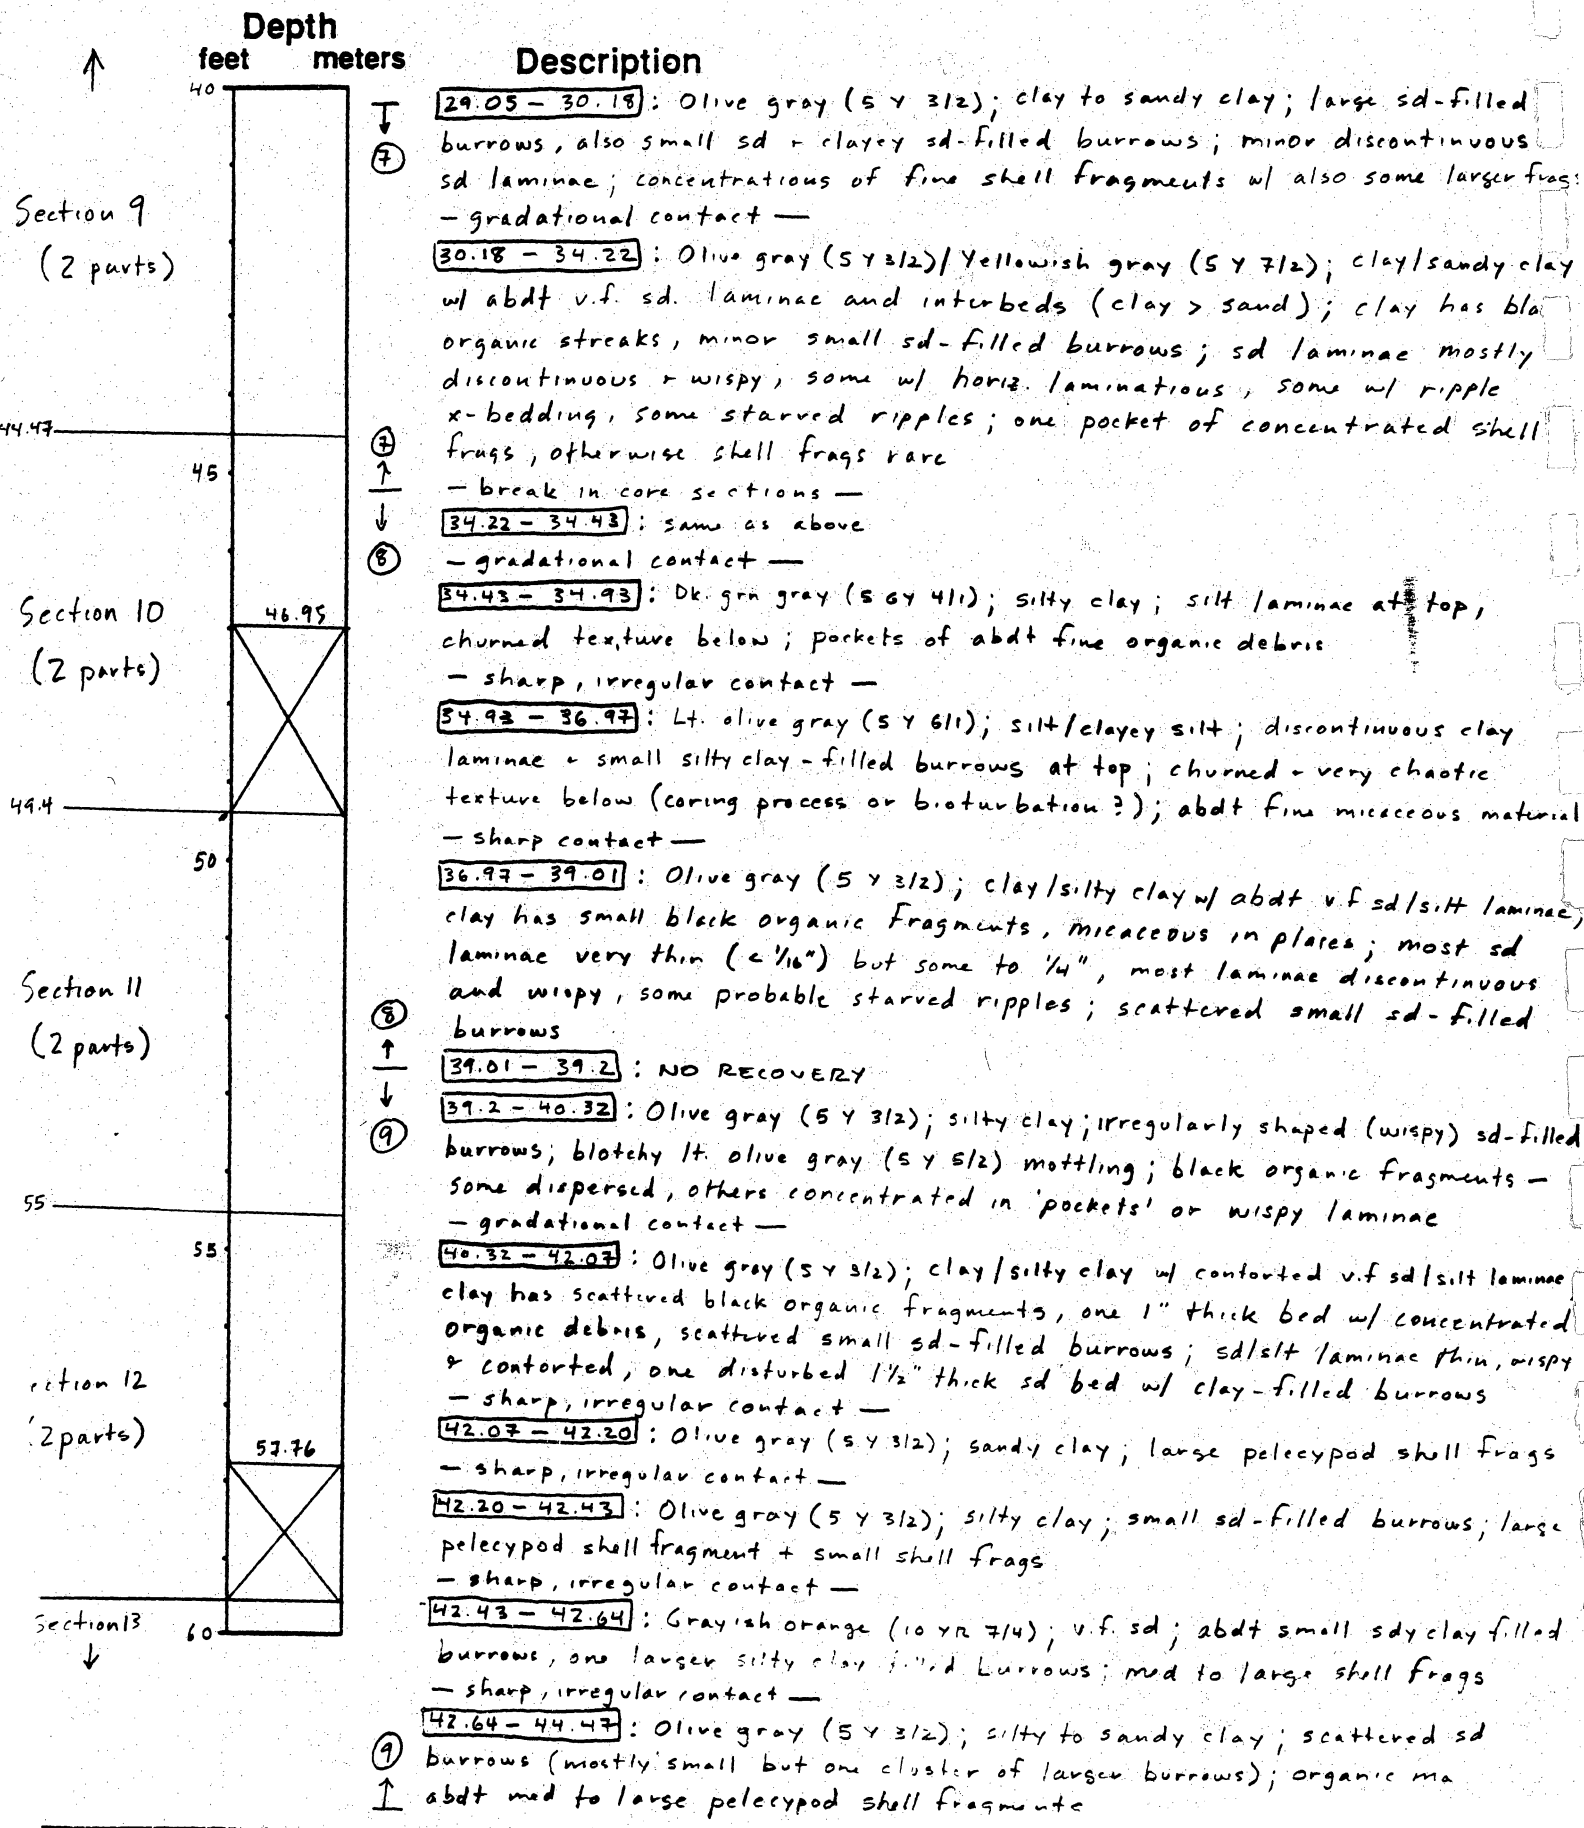 Depth
feet meters Description
40
29.05 – 30.18 : Olive gray (5 Y 3/2); clay to sandy clay; large sd-filled
7
burrows, also small sd + clayey sd-filled burrows; minor discontinuous
sd laminae; concentrations of fine shell fragments w/ also some larger frags
Section 9
(2 parts)
– gradational contact —
30.18 – 34.22 : Olive gray (5 Y 3/2)/Yellowish gray (5 Y 7/2); clay/sandy clay
w/ abdt v.f. sd. laminae and interbeds (clay > sand); clay has bla
organic streaks, minor small sd-filled burrows; sd laminae mostly
discontinuous + wispy, some w/ horiz. laminations, some w/ ripple
x-bedding, some starved ripples; one pocket of concentrated shell
44.47
7
frags, otherwise shell frags rare
45
– break in core sections —
34.22 – 34.43 : same as above
8
– gradational contact —
Section 10
(2 parts)
46.95
34.43 – 34.93 : Dk. grn gray (5 GY 4/1); silty clay; silt laminae at top,
churned texture below; pockets of abdt fine organic debris
– sharp, irregular contact —
34.93 – 36.97 : Lt. olive gray (5 Y 6/1); silt/clayey silt; discontinuous clay
laminae + small silty clay-filled burrows at top; churned + very chaotic
49.4
texture below (coring process or bioturbation?); abdt fine micaceous material
– sharp contact —
50
36.97 – 39.01 : Olive gray (5 Y 3/2); clay/silty clay w/ abdt v.f sd/silt laminae;
clay has small black organic fragments, micaceous in places; most sd
laminae very thin (< 1/16") but some to 1/4", most laminae discontinuous
Section 11
(2 parts)
and wispy, some probable starved ripples; scattered small sd-filled
8
burrows
39.01 – 39.2 : NO RECOVERY
39.2 – 40.32 : Olive gray (5 Y 3/2); silty clay; irregularly shaped (wispy) sd-filled
9
burrows; blotchy lt. olive gray (5 Y 5/2) mottling; black organic fragments –
some dispersed, others concentrated in 'pockets' or wispy laminae
55
– gradational contact —
55
40.32 – 42.07 : Olive gray (5 Y 3/2); clay/silty clay w/ contorted v.f sd/silt laminae
clay has scattered black organic fragments, one 1" thick bed w/ concentrated
organic debris, scattered small sd-filled burrows; sd/slt laminae thin, wispy
+ contorted, one disturbed 1½" thick sd bed w/ clay-filled burrows
ection 12
2 parts)
– sharp, irregular contact —
57.76
42.07 – 42.20 : Olive gray (5 Y 3/2); sandy clay; large pelecypod shell frags
– sharp, irregular contact —
42.20 – 42.43 : Olive gray (5 Y 3/2); silty clay; small sd-filled burrows; large
pelecypod shell fragment + small shell frags
– sharp, irregular contact —
Section 13
60
42.43 – 42.64 : Grayish orange (10 YR 7/4); v.f. sd; abdt small sdy clay filled
burrows, one larger silty clay filled burrows; med to large shell frags
– sharp, irregular contact —
42.64 – 44.47 : Olive gray (5 Y 3/2); silty to sandy clay; scattered sd
9
burrows (mostly small but one cluster of larger burrows); organic ma
abdt med to large pelecypod shell fragments